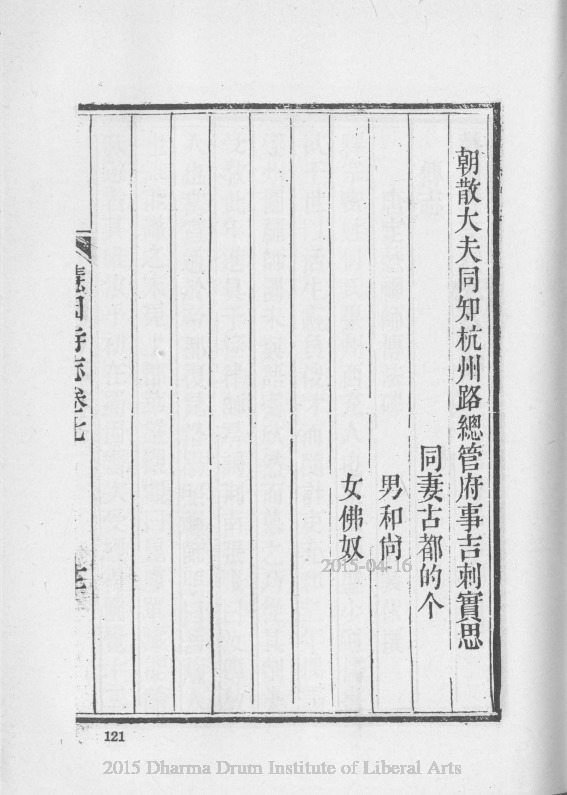 朝散大夫同知杭州路總管府事吉剌實思
同妻古都的个
男和尙
女佛奴
卷七
2015-04-16
121
2015 Dharma Drum Institute of Liberal Arts